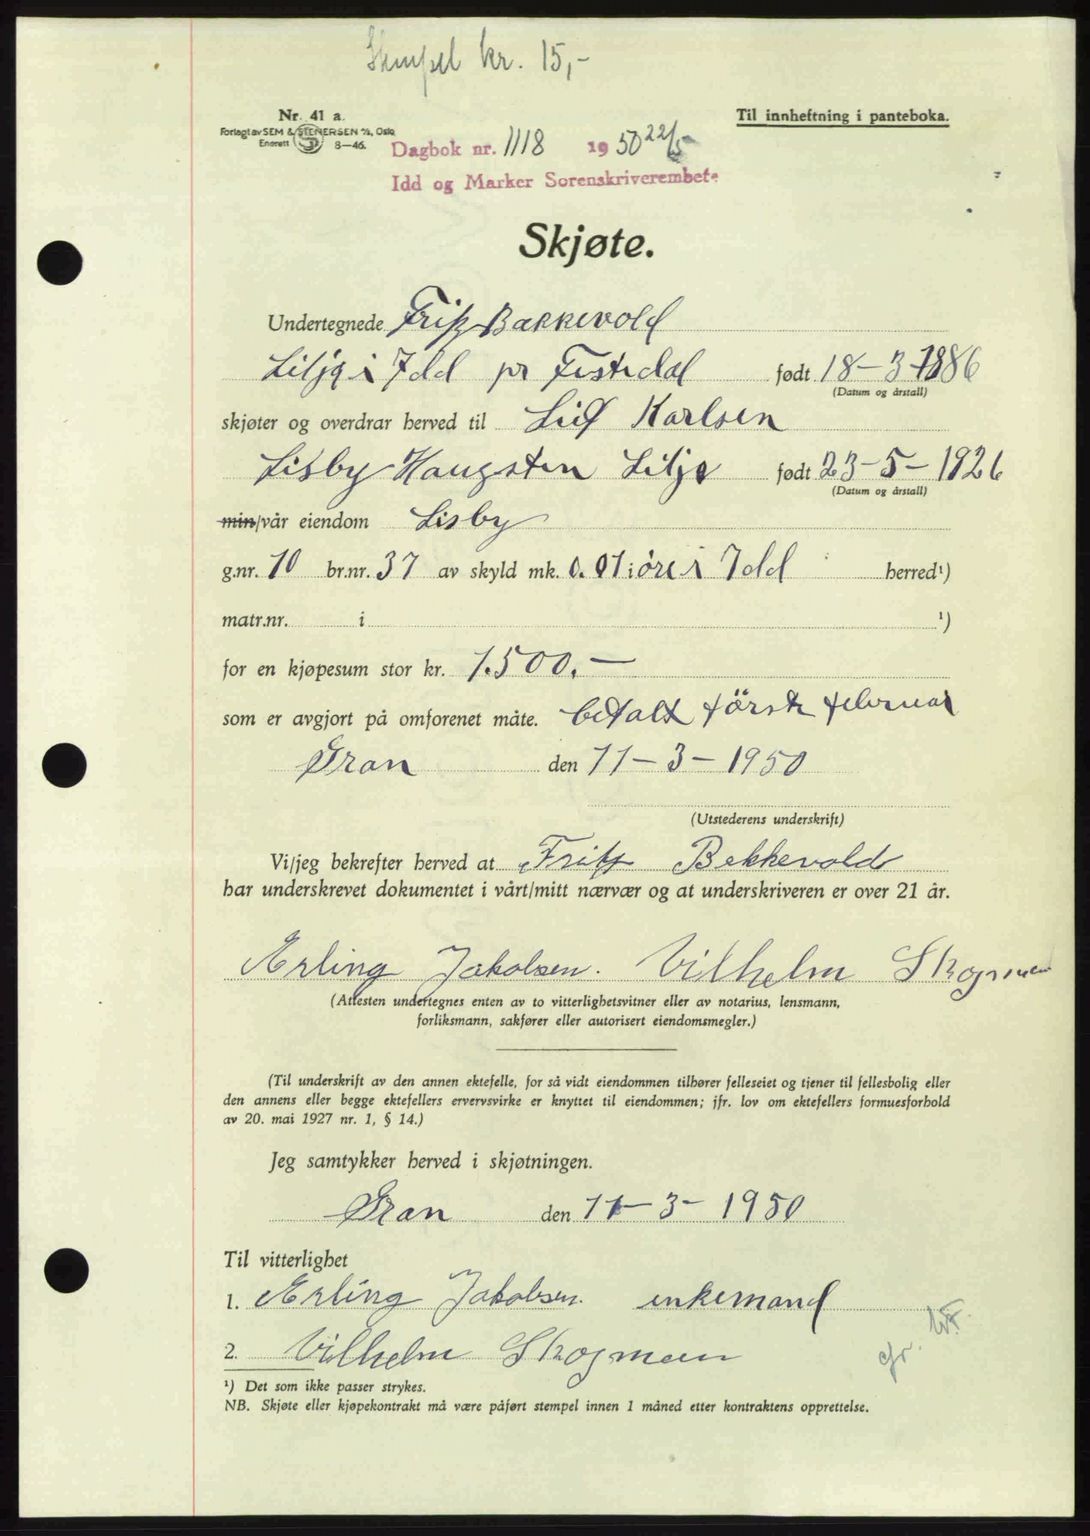 Stempel kr. 15,-
Nr. 41 a.
Til innheftning i panteboka.
Forlagt av SEM & STENERSEN A/S, Oslo
Enerett 8—46.
Dagbok nr. 1118 1950 22/5
Idd og Marker Sorenskriverembete
Skjøte.
Undertegnede Fritz Bakkevold
Lilje i Idd pr Tistedal født 18-3-1886
(Datum og årstall)
skjøter og overdrar herved til Leif Karlsen
Lisby Haugsten Lilje født 23-5-1926
(Datum og årstall)
min/vår eiendom Lisby
g.nr. 10 br.nr. 37 av skyld mk. 0.01 øre i Idd herred¹)
matr.nr. i ¹)
for en kjøpesum stor kr. 1.500.—
som er avgjort på omforenet måte. betalt förste februar
Gran den 11-3-1950
(Utstederens underskrift)
Vi/jeg bekrefter herved at Fritz Bekkevold
har underskrevet dokumentet i vårt/mitt nærvær og at underskriveren er over 21 år.
Erling Jakobsen. Vilhelm Skogmen
(Attesten undertegnes enten av to vitterlighetsvitner eller av notarius, lensmann,
forliksmann, sakfører eller autorisert eiendomsmegler.)
(Til underskrift av den annen ektefelle, for så vidt eiendommen tilhører felleseiet og tjener til fellesbolig eller
den annens eller begge ektefellers ervervsvirke er knyttet til eiendommen; jfr. lov om ektefellers formuesforhold
av 20. mai 1927 nr. 1, § 14.)
Jeg samtykker herved i skjøtningen.
Gran den 11-3-1950
Til vitterlighet
1. Erling Jakobsen. enkemand
2. Vilhelm Skogmen
¹) Det som ikke passer strykes.
NB. Skjøte eller kjøpekontrakt må være påført stempel innen 1 måned etter kontraktens opprettelse.